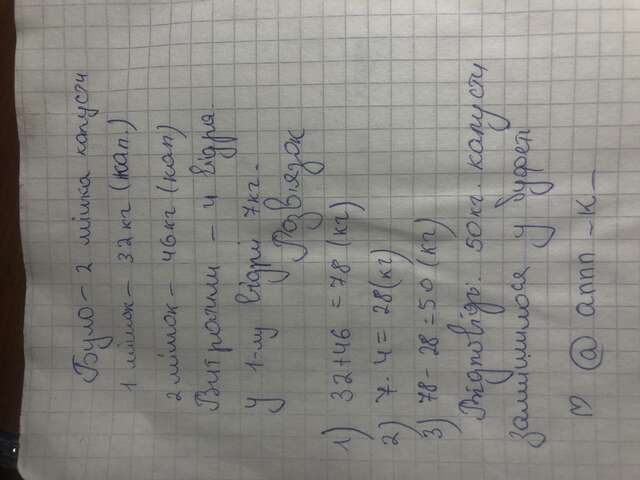 Було - 2 мішка капусти
1 мішок - 32кг (кап.)
2 мішок - 46кг (кап)
Витратили - 4 відра.
У 1-му відрі 7кг.
Розв'язок
1) 32+46 = 78 (кг)
2) 7·4 = 28(кг)
3) 78-28=50 (кг)
Відповідь: 50кг. капусти
залишилося у буфеті
♡ @ annn -K-